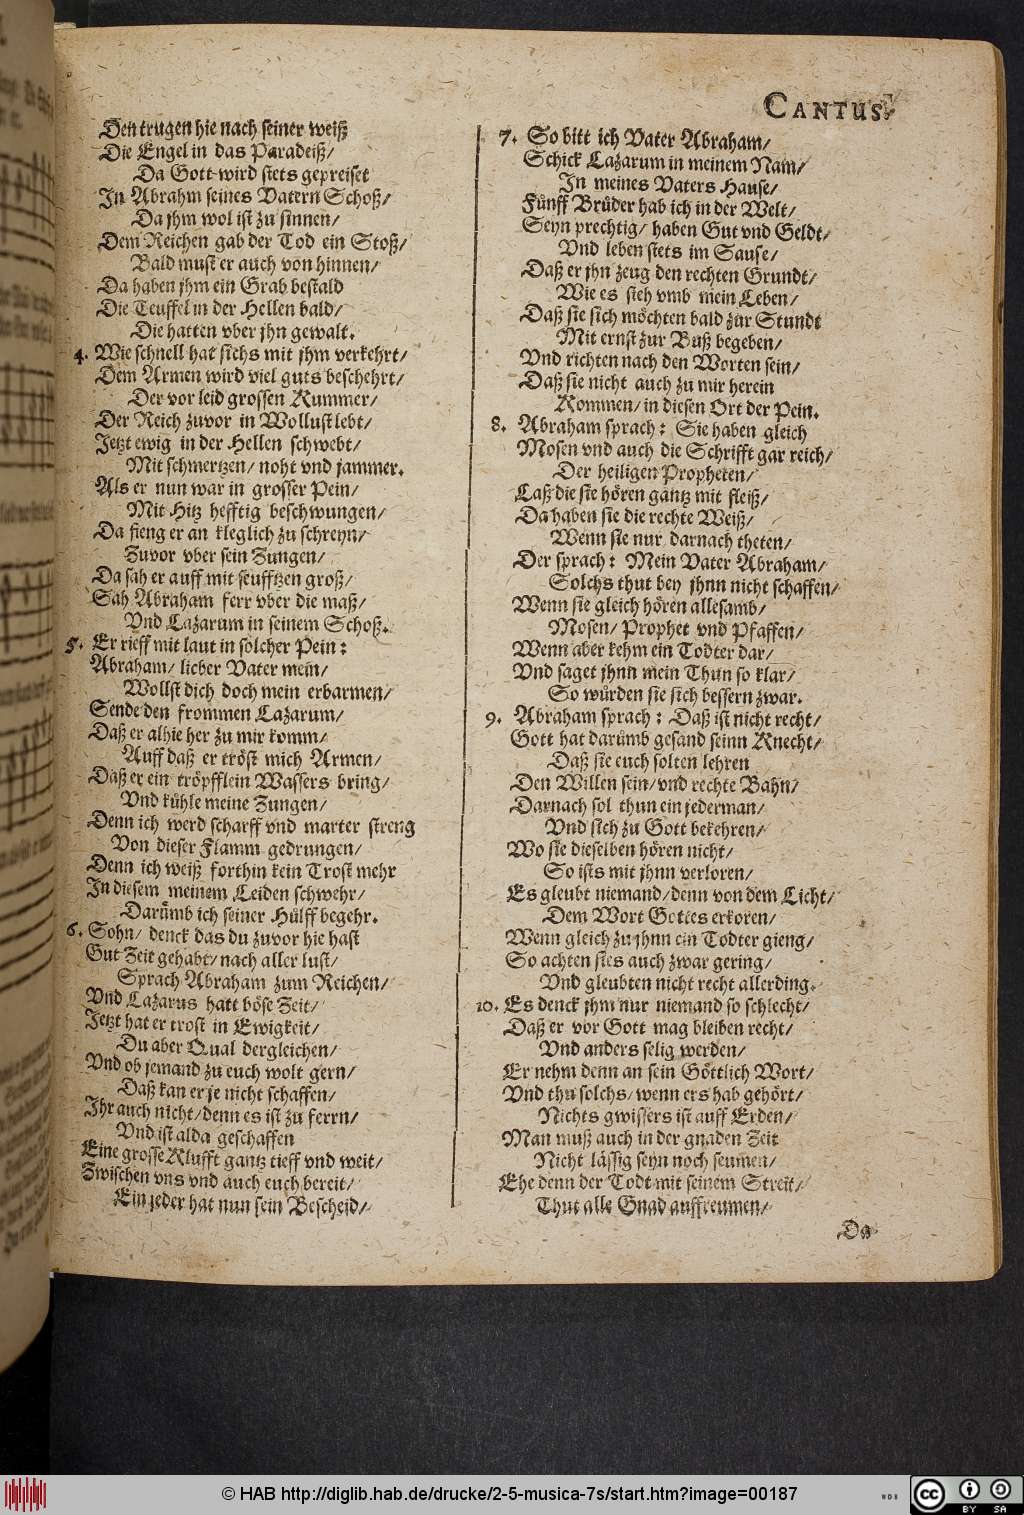 CANTUS.
Den trugen hie nach seiner weiß
Die Engel in das Paradeiß/
Da Gott wird stets gepreiset
In Abrahm seines Vatern Schoß/
Da jhm wol ist zu sinnen/
Dem Reichen gab der Tod ein Stoß/
Bald must er auch von hinnen/
Da haben jhm ein Grab bestald
Die Teuffel in der Hellen bald/
Die hatten vber jhn gewalt.
4. Wie schnell hat sichs mit jhm verkehrt/
Dem Armen wird viel guts beschehrt/
Der vor leid grossen Kummer/
Der Reich zuvor in Wollust lebt/
Jetzt ewig in der Hellen schwebt/
Mit schmertzen/ noht vnd jammer.
Als er nun war in grosser Pein/
Mit Hitz hefftig beschwungen/
Da fieng er an kleglich zu schreyn/
Zuvor vber sein Zungen/
Da sah er auff mit seufftzen groß/
Sah Abraham ferr vber die maß/
Vnd Lazarum in seinem Schoß.
5. Er rieff mit laut in solcher Pein:
Abraham/ lieber Vater mein/
Wollst dich doch mein erbarmen/
Sende den frommen Lazarum/
Daß er alhie her zu mir komm/
Auff daß er tröst mich Armen/
Daß er ein tröpfflein Wassers bring/
Vnd kühle meine Zungen/
Denn ich werd scharff vnd marter streng
Von dieser Flamm gedrungen/
Denn ich weiß forthin kein Trost mehr
In diesem meinem Leiden schwehr/
Darümb ich seiner Hülff begehr.
6. Sohn/ denck das du zuvor hie hast
Gut Zeit gehabt/ nach aller lust/
Sprach Abraham zum Reichen/
Vnd Lazarus hatt böse Zeit/
Jetzt hat er trost in Ewigkeit/
Du aber Qual dergleichen/
Vnd ob jemand zu euch wolt gern/
Daß kan er je nicht schaffen/
Ihr auch nicht/ denn es ist zu ferrn/
Vnd ist alda geschaffen
Eine grosse Klufft gantz tieff vnd weit/
Zwischen vns vnd auch euch bereit/
Ein jeder hat nun sein Bescheid/
7. So bitt ich Vater Abraham/
Schick Lazarum in meinem Nam/
In meines Vaters Hause/
Fünff Brüder hab ich in der Welt/
Seyn prechtig/ haben Gut vnd Geldt/
Vnd leben stets im Sause/
Daß er jhn zeug den rechten Grundt/
Wie es sieh vmb mein Leben/
Daß sie sich möchten bald zur Stundt
Mit ernst zur Buß begeben/
Vnd richten nach den Worten sein/
Daß sie nicht auch zu mir herein
Kommen/ in diesen Ort der Pein.
8. Abraham sprach: Sie haben gleich
Mosen vnd auch die Schrifft gar reich/
Der heiligen Propheten/
Laß die sie hören gantz mit fleiß/
Da haben sie die rechte Weiß/
Wenn sie nur darnach theten/
Der sprach: Mein Vater Abraham/
Solchs thut bey jhnn nicht schaffen/
Wenn sie gleich hören allesamb/
Mosen/ Prophet vnd Pfaffen/
Wenn aber kehm ein Todter dar/
Vnd saget jhnn mein Thun so klar/
So würden sie sich bessern zwar.
9. Abraham sprach: Daß ist nicht recht/
Gott hat darümb gesand seinn Knecht/
Daß sie euch solten lehren
Den Willen sein/ vnd rechte Bahn/
Darnach sol thun ein jederman/
Vnd sich zu Gott bekehren/
Wo sie dieselben hören nicht/
So ists mit jhnn verloren/
Es gleubt niemand/ denn von dem Licht/
Dem Wort Gottes erkoren/
Wenn gleich zu jhnn ein Todter gieng/
So achten sies auch zwar gering/
Vnd gleubten nicht recht allerding.
10. Es denck jhm nur niemand so schlecht/
Daß er vor Gott mag bleiben recht/
Vnd anders selig werden/
Er nehm denn an sein Göttlich Wort/
Vnd thu solchs/ wenn ers hab gehört/
Nichts gwissers ist auff Erden/
Man muß auch in der gnaden Zeit
Nicht lässig seyn noch seumen/
Ehe denn der Todt mit seinem Streit/
Thut alle Gnad auffreumen/
Da
© HAB http://diglib.hab.de/drucke/2-5-musica-7s/start.htm?image=00187
WDB
cc BY SA